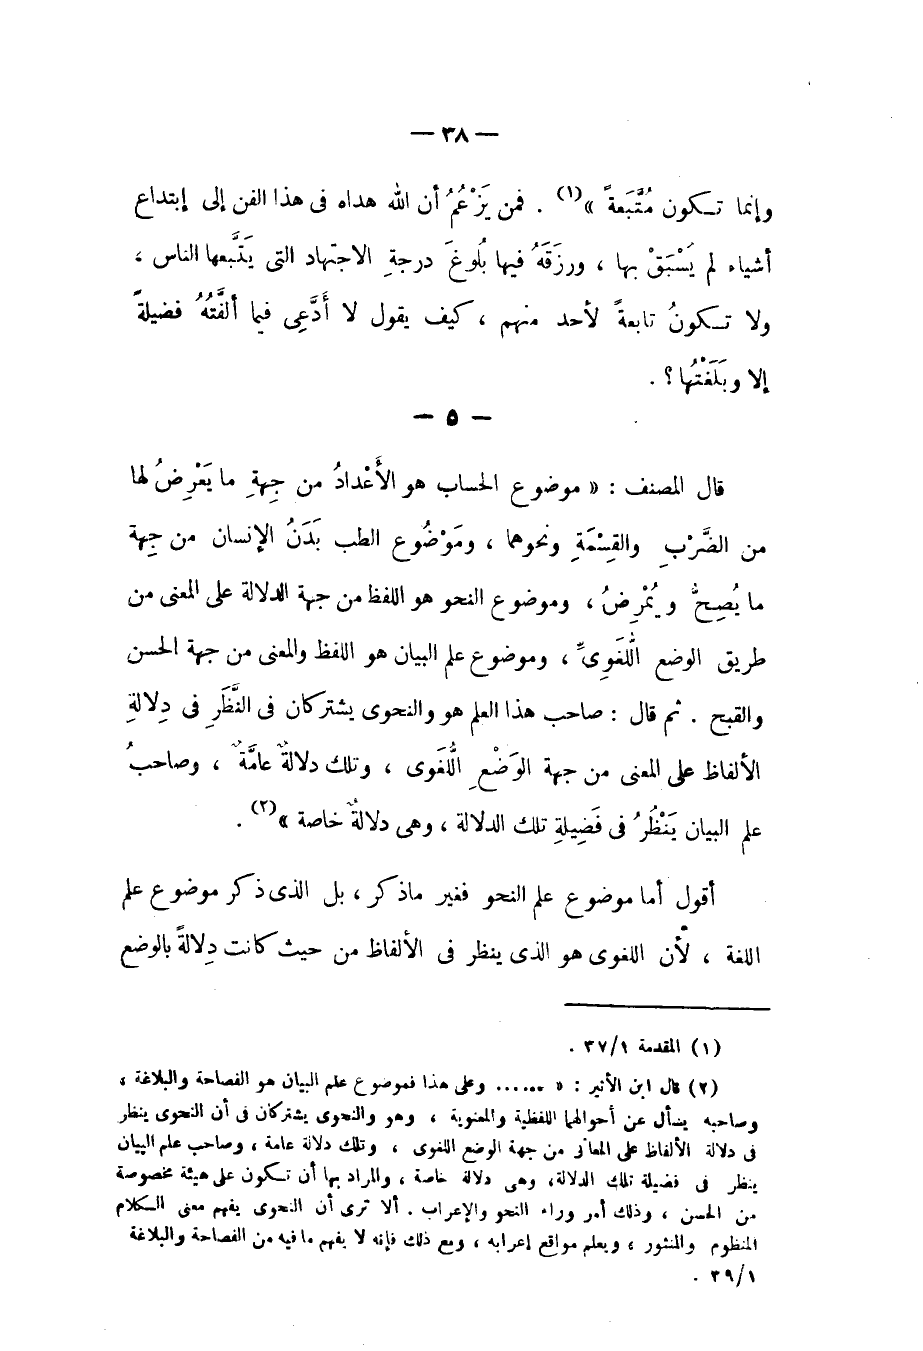 — ٣٨ —
وإنما تكون مُتَّبَعةً »(١) . فمن يَزْعُمُ أن الله هداه فى هذا الفن إلى إبتداع
أشياء لم يَسْبَقْ بها ، ورزَقَهُ فيها بُلُوغَ درجةِ الاجتهاد التى يَتَّبعها الناس ،
ولا تكونُ تابعةً لأحد منهم ، كيف يقول لا أَدَّعِى فيما ألفَّتُهُ فضيلةً
إلا وبَلَغْتُها ؟ .
— ٥ —
قال المصنف : « موضوع الحساب هو الأَعْدادُ من جِهةِ ما يَعْرِضُ لها
من الضَّرْبِ والقِسْمَةِ ونحوهما ، ومَوْضُوع الطب بَدَنُ الإنسان من جِهة
ما يُصِحُّ ويُمْرِضُ ، وموضوع النحو هو اللفظ من جهة الدلالة على المعنى من
طريق الوضع اللُّغَوِىِّ ، وموضوع علم البيان هو اللفظ والمعنى من جهة الحسن
والقبح . ثم قال : صاحب هذا العلم هو والنحوى يشتركان فى النَّظَرِ فى دِلالةِ
الألفاظ على المعنى من جهة الوَضْعِ اللُّغَوى ، وتلك دلالةٌ عامَّةٌ ، وصاحبُ
علم البيان يَنْظُرُ فى فَضِيلةِ تلك الدلالة ، وهى دلالةٌ خاصة »(٢) .
أقول أما موضوع علم النحو فغير ماذكر ، بل الذى ذكر موضوع علم
اللغة ، لأن اللغوى هو الذى ينظر فى الألفاظ من حيث كانت دِلالةً بالوضع
(١) المقدمة ٣٧/١ .
(٢) قال ابن الأثير : « ...... وعلى هذا فموضوع علم البيان هو الفصاحة والبلاغة ،
وصاحبه يسأل عن أحوالهما اللفظية والمعنوية ، وهو والنحوى يشتركان فى أن النحوى ينظر
فى دلالة الألفاظ على المعانى من جهة الوضع اللغوى ، وتلك دلالة عامة ، وصاحب علم البيان
ينظر فى فضيلة تلك الدلالة، وهى دلالة خاصة ، والمراد بها أن تكون على هيئة مخصوصة
من الحسن ، وذلك أمر وراء النحو والإعراب . ألا ترى أن النحوى يفهم معنى الكلام
المنظوم والمنثور ، ويعلم مواقع إعرابه ، ومع ذلك فإنه لا يفهم ما فيه من الفصاحة والبلاغة
٣٩/١ .